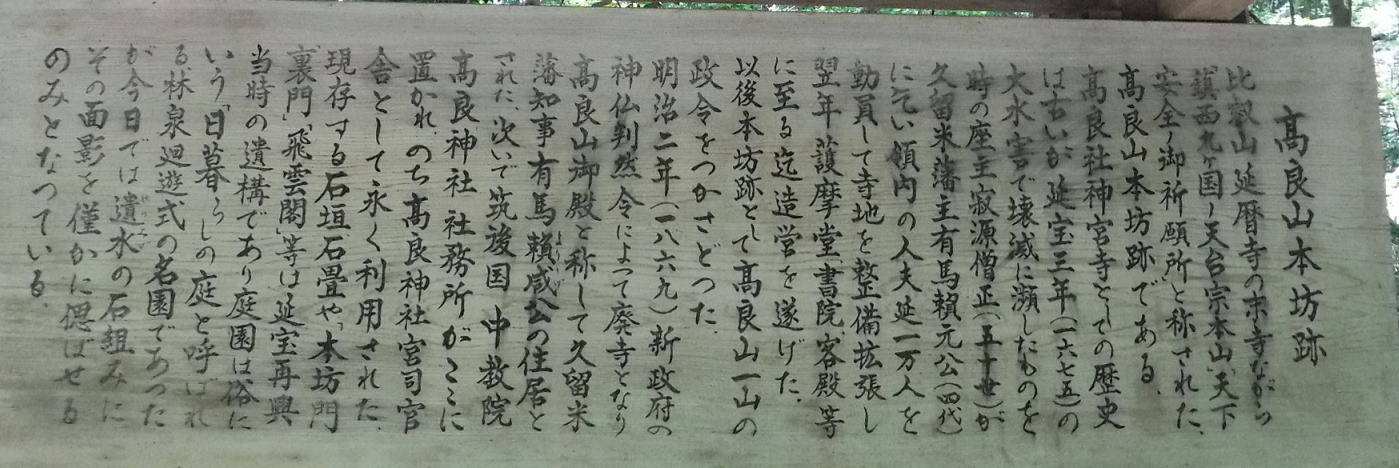 高良山本坊跡
比叡山延暦寺の末寺ながら
「鎮西九ヶ国ノ天台宗本山」「天下
安全ノ御祈願所」と称された、
高良山本坊跡である。
高良社神宮寺としての歴史
は古いが延宝三年(一六七五)の
大水害で壊滅に瀕したものを
時の座主寂源僧正(五十世)が
久留米藩主有馬頼元公(四代)
にてい領内の人夫延一万人を
動員して寺地を整備拡張し
翌年護摩堂、書院、客殿等
に至る迄造営を遂げた。
以後本坊跡として高良山一山の
政令をつかさどった。
明治二年(一八六九)新政府の
神仏判然令によって廃寺となり
高良山御殿と称して久留米
藩知事有馬頼咸公の住居と
された、次いで筑後国中教院
高良神社社務所がここに
置かれ、のち高良神社宮司官
舎として永く利用された。
現存する石垣石畳や、「本坊門
裏門」「飛雲閣」等は延宝再興
当時の遺構であり庭園は俗に
いう「日暮らしの庭」と呼ばれ
る林泉廻遊式の名園であった
が今日では遺水の石組みに
その面影を僅かに偲ばせる
のみとなっている。